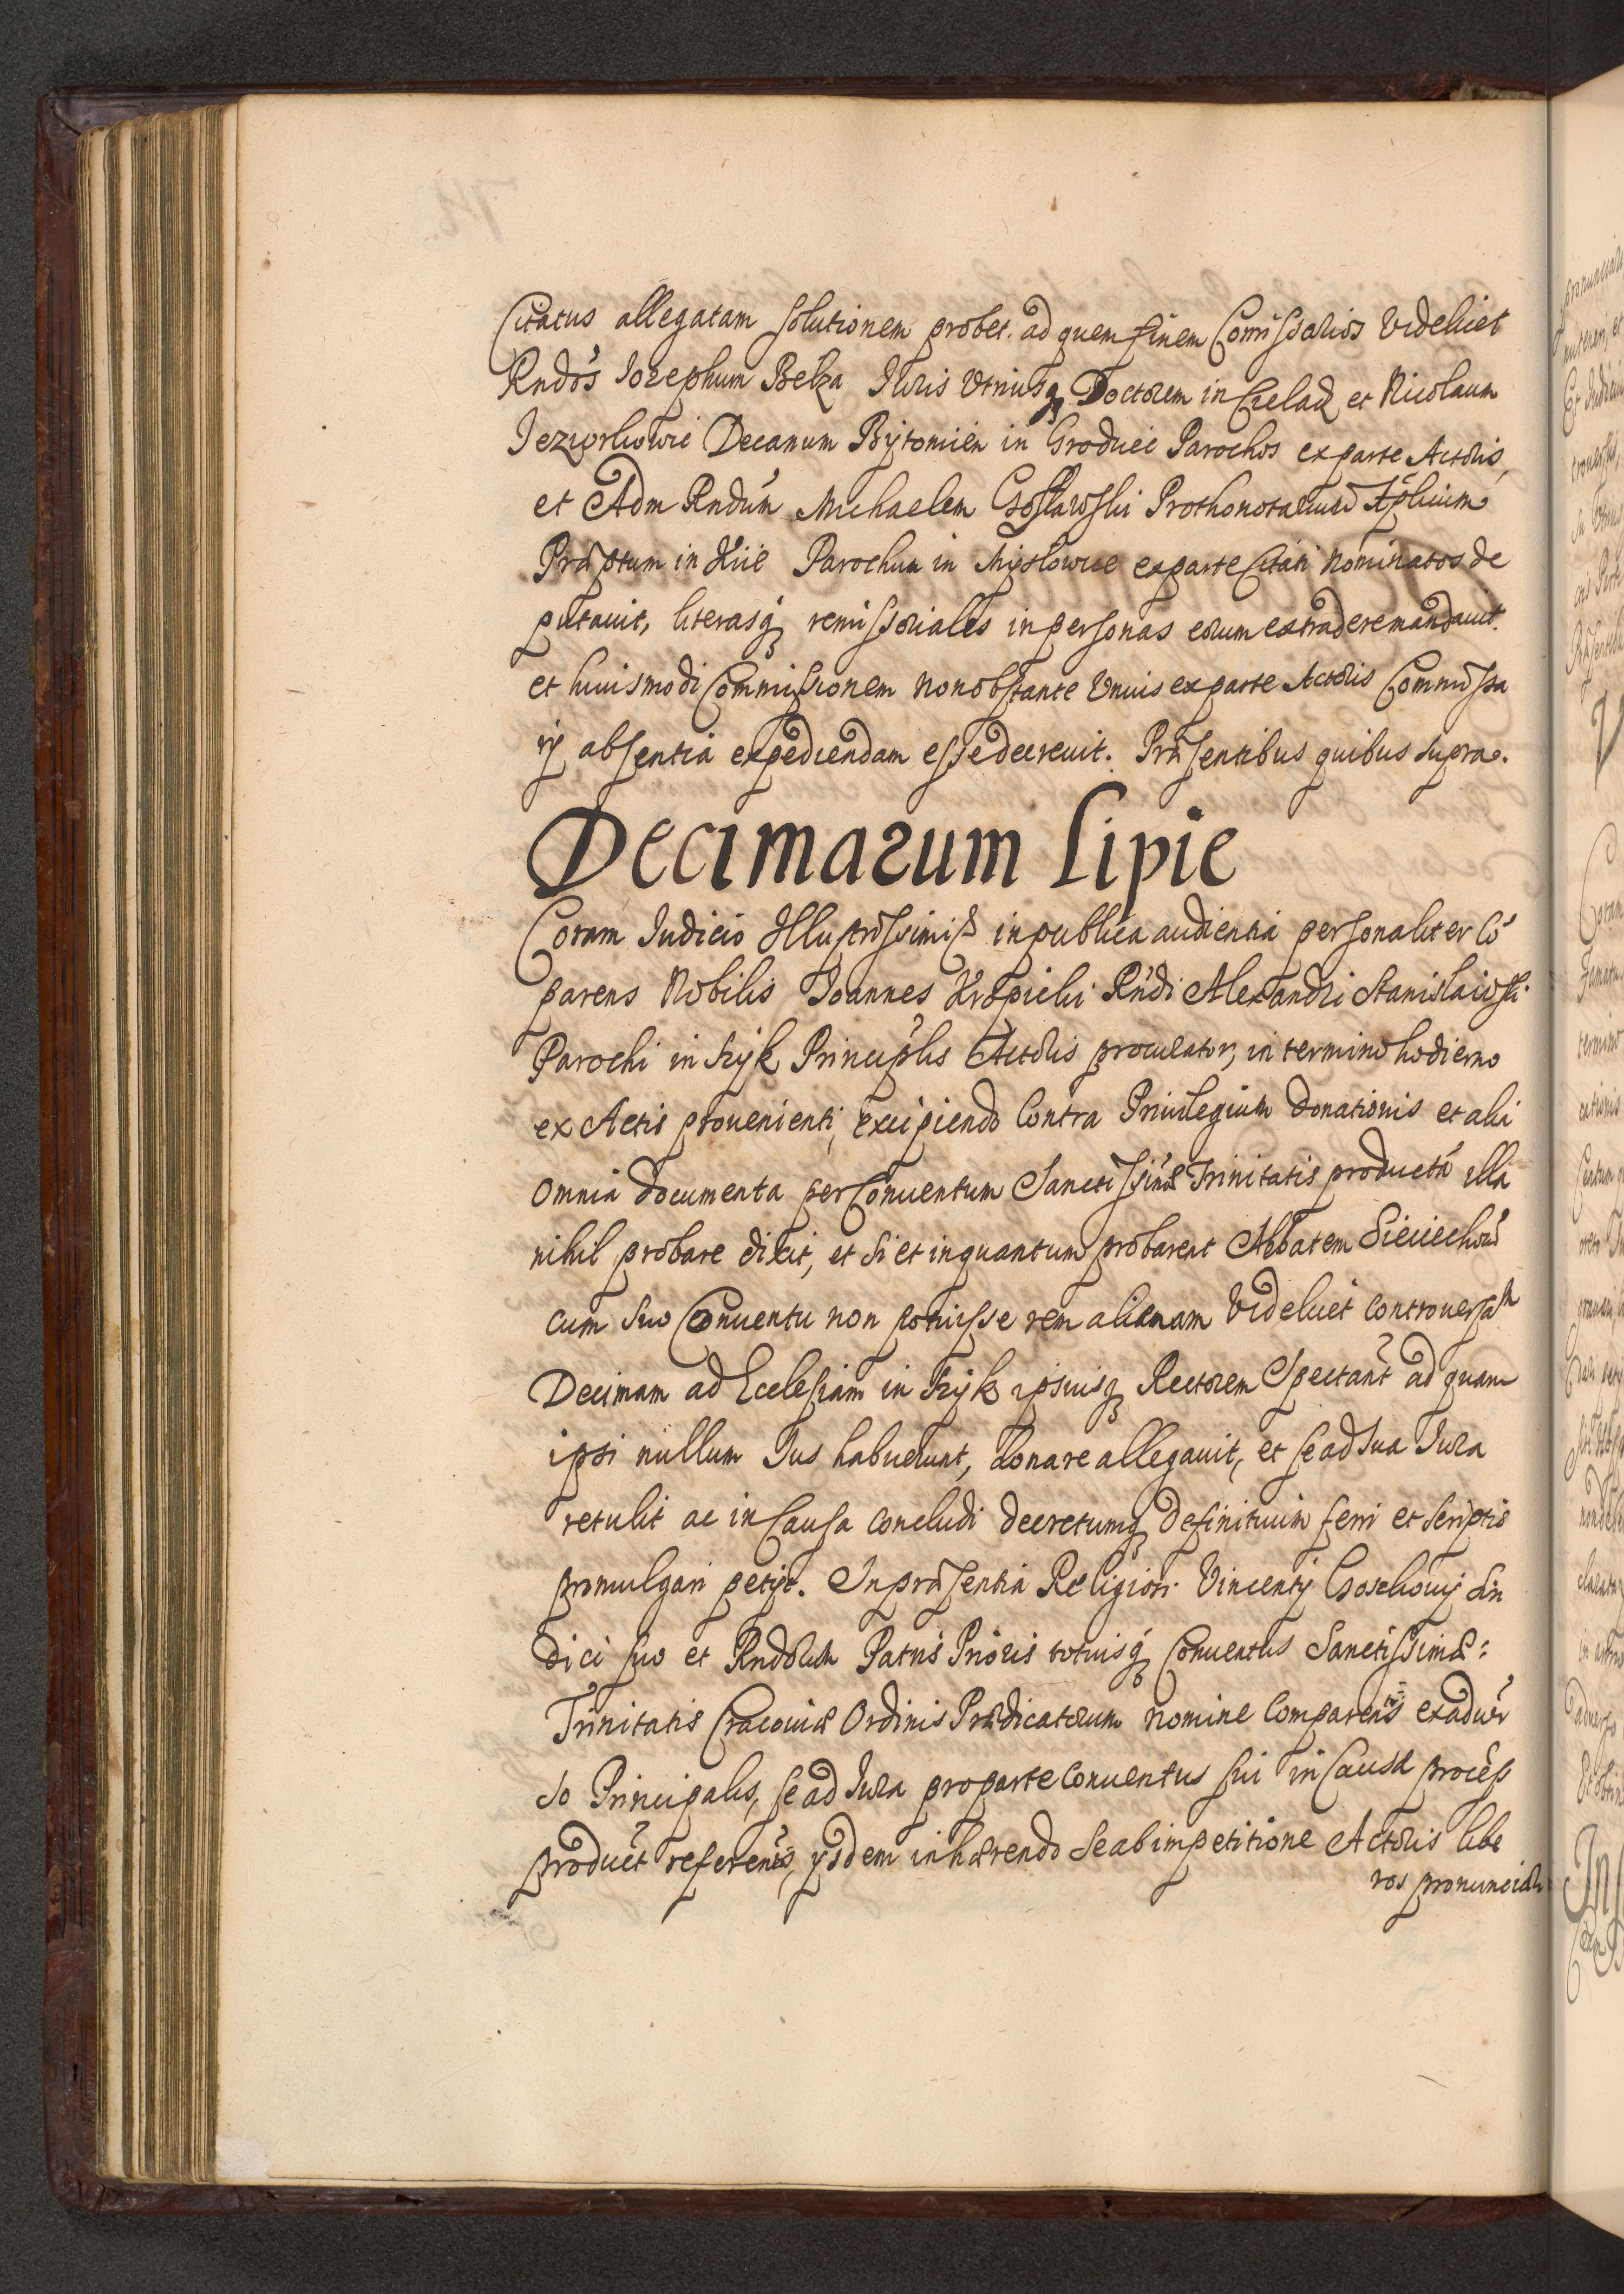 Citatus allegatam solutionem probet. ad quem finem Com̃issarios videlicet
Rndos Iozephum Belza Iuris Vtriusq́ Doctorem in Czeladz et Nicolaum
Decanum Bytomien in Grodziec Parochos ex parte Actoris,
et Adm Rndum Michaelem Gosławski Prothonotarium Aplicum
Præptum in Parochum in Mysłowice ex parte Citati nominatos de
putauit, literasq́ remissoriales in personas eorum extradere mandauit.
et huiusmodi Commissionem non obstante Vnius ex parte Actoris Commissa
rij absentia expediendam esse decreuit. Præsentibus quibus supra.
Decimarum Lipie
Coram Iudicio Illustrissimi D in publica audientia personaliter Cõ
parens Nobilis Ioannes Kropicki Rndi Alexandri Stanisławski
Parochi in Łryk Principlis Actoris procurator, in termino hodierno
ex Actis prouenienti, excipiendo Contra Priuilegium Donationis et alia
omnia documenta per Conuentum Sanctissimæ Trinitatis producta illa
nihil probare dixit, et si et inquantum probarent Abbatem Sieciechow
cum suo Conuentu non potuisse rem alienam videlicet controuersam
Decimam ad Ecclesiam in Łryk ipsiusq́ Rectorem Spectant ad quam
ipsi nullum Ius habuerunt, donare allegauit, et se ad sua Iura
retulit ac in Causa concludi decretumq́ definitiuum ferri et scriptis
promulgari petijt. In præsentia Religiosi Vincentij Sin
dici suo et Rndorum Patris Prioris totiusq́ Conuentus Sanctissimæ:
Trinitatis Cracouiæ Ordinis Prædicatorum nomine Comparentis ex aduer
so Principalis, se ad Iura pro parte conuentus sui in Causa process
product referentis, ijsdem inhærendo se ab impetitione Actoris libe
ros pronunciari